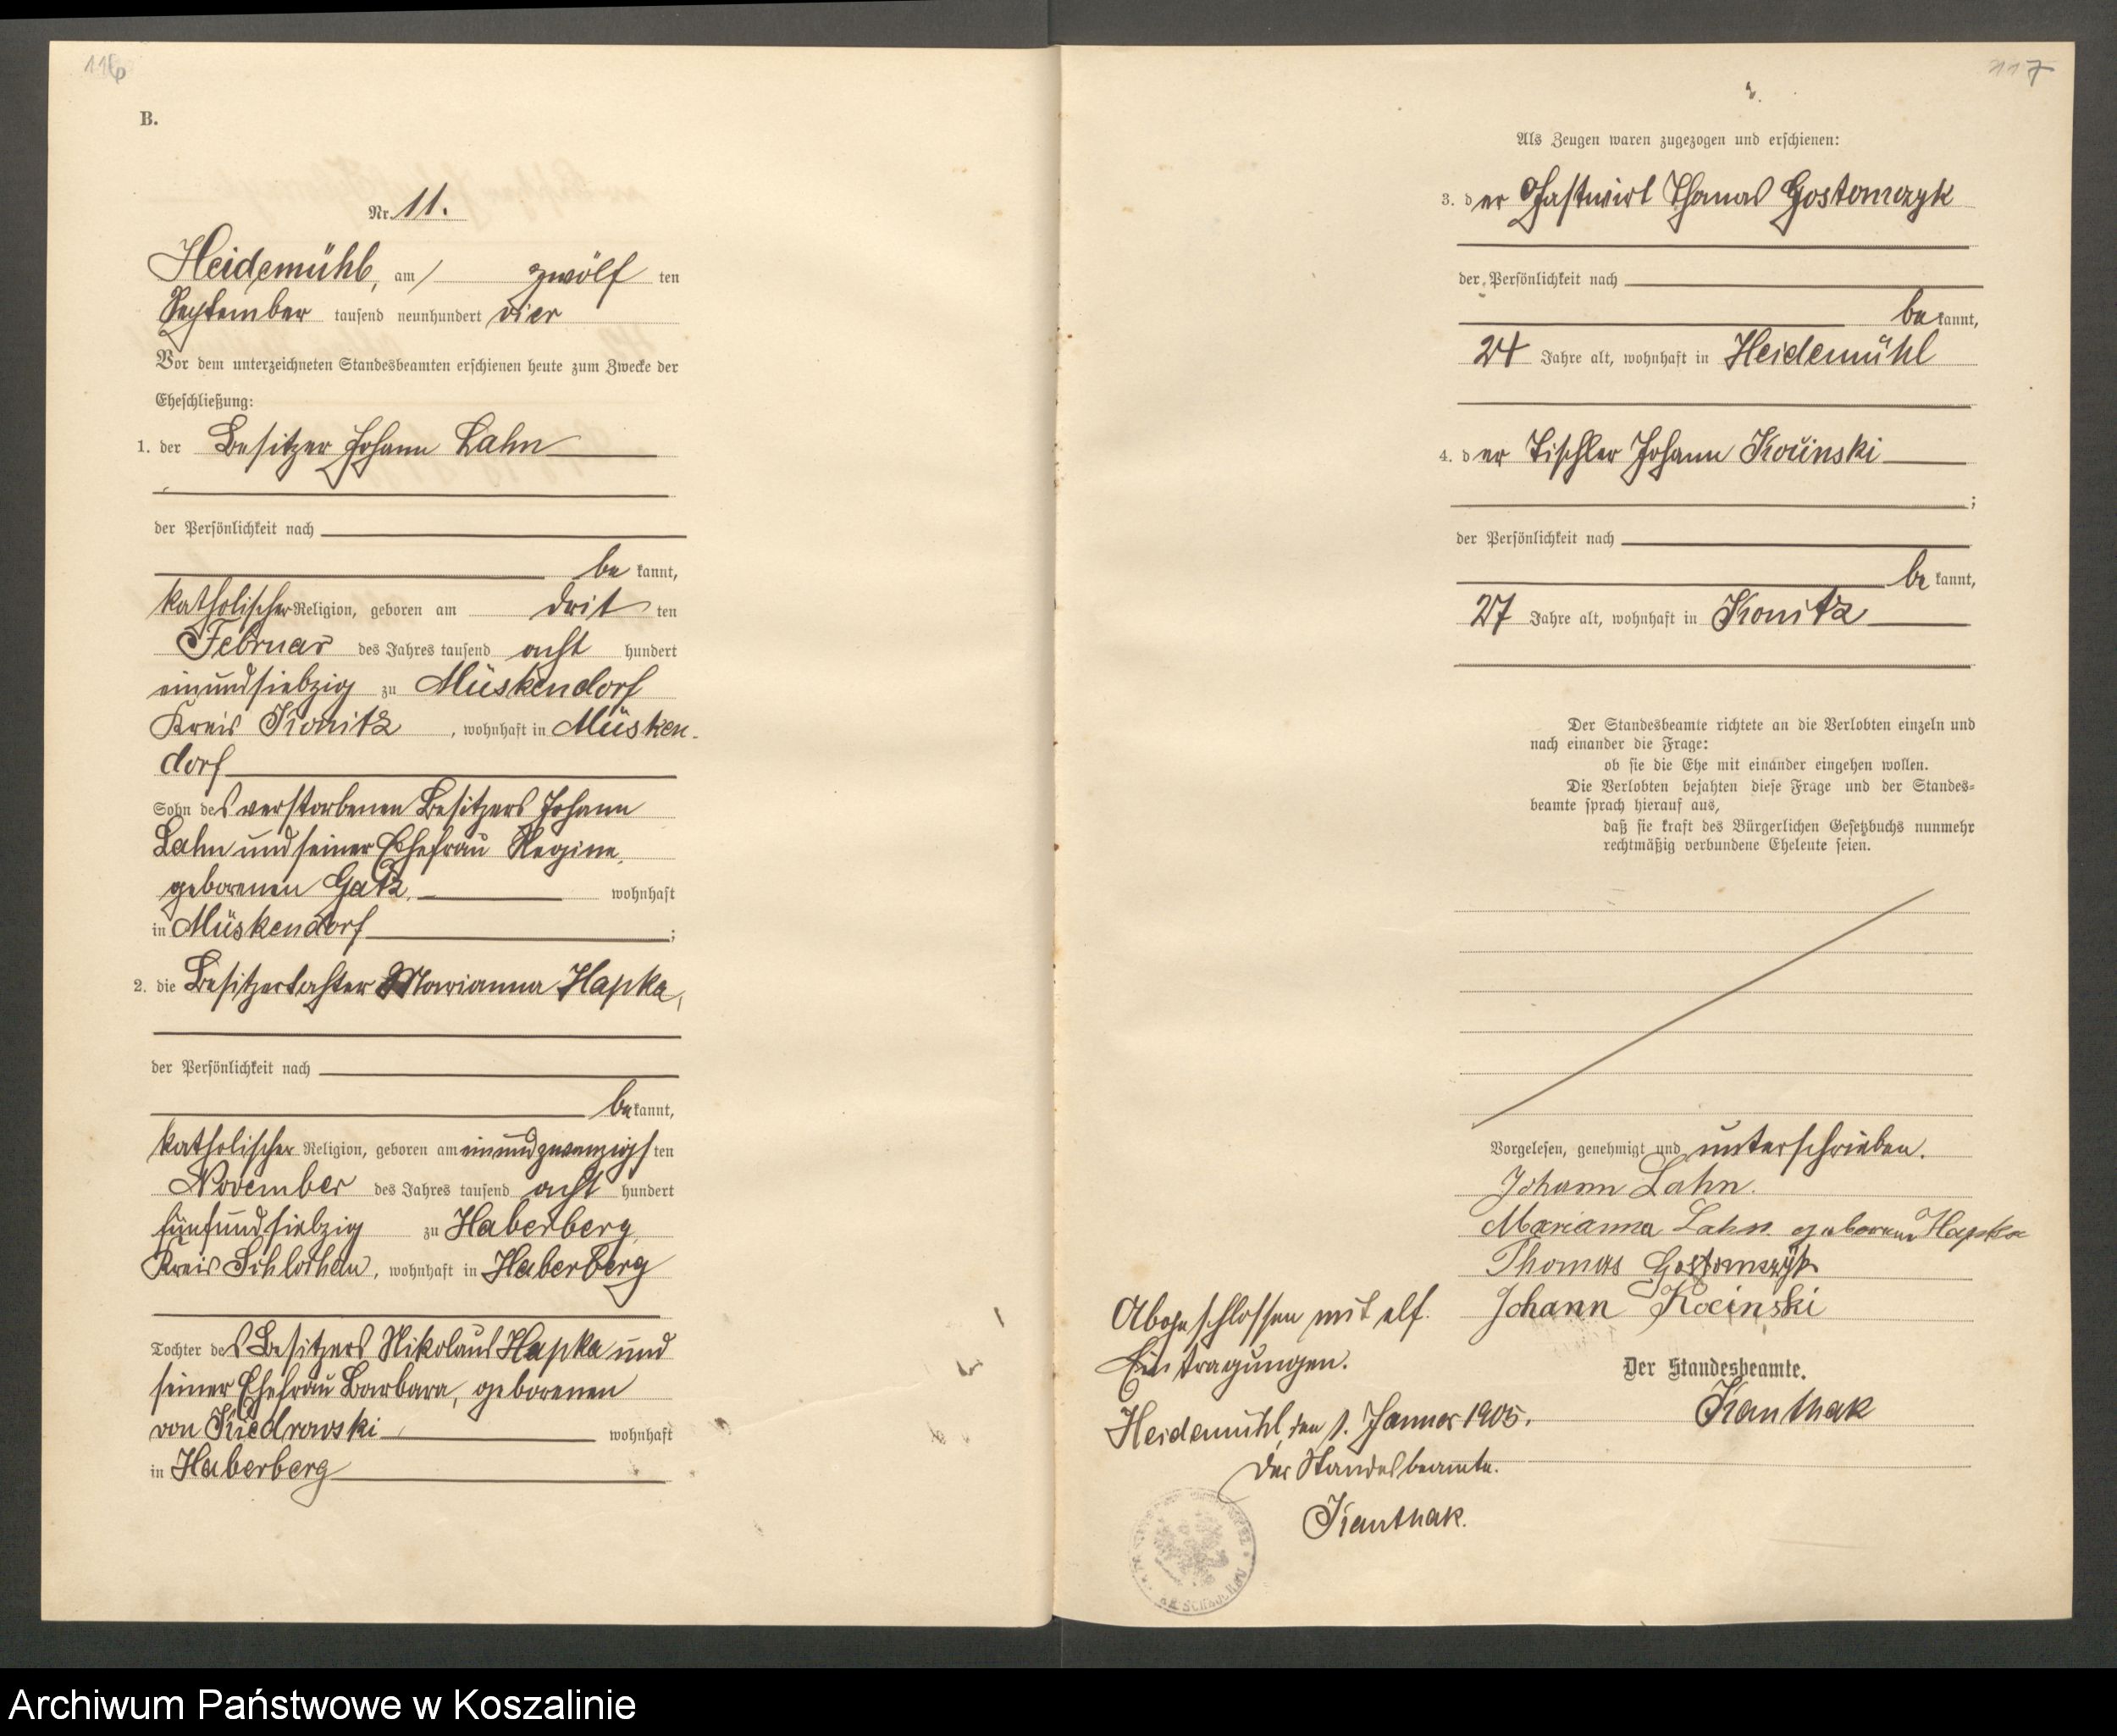 116
B.
Nr. 11.
Heidemühl, am zwölf ten
September tausend neunhundert vier
Vor dem unterzeichneten Standesbeamten erschienen heute zum Zwecke der
Eheschließung:
1. der Besitzer Johann Lahn
der Persönlichkeit nach
be kannt,
katholischer Religion, geboren am drit ten
Februar des Jahres tausend acht hundert
einundsiebzig zu Müskendorf
Kreis Konitz, wohnhaft in Müsken-
dorf
Sohn des verstorbenen Besitzers Johann
Lahn und seiner Ehefrau Regine,
geborenen Gatz, wohnhaft
in Müskendorf;
2. die Besitzertochter Marianna Hapka,
der Persönlichkeit nach
be kannt,
katholischer Religion, geboren am einundzwanzigs ten
November des Jahres tausend acht hundert
fünfundsiebzig zu Haberberg,
Kreis Schlochau, wohnhaft in Haberberg
Tochter des Besitzers Nikolaus Hapka und
seiner Ehefrau Barbara, geborenen
von Kiedrowski wohnhaft
in Haberberg
117
Als Zeugen waren zugezogen und erschienen:
3. der Gastwirt Thomas Gostomczyk
der Persönlichkeit nach
be kannt,
24 Jahre alt, wohnhaft in Heidemühl
4. der Tischler Johann Kocinski
;
der Persönlichkeit nach
be kannt,
27 Jahre alt, wohnhaft in Konitz
Der Standesbeamte richtete an die Verlobten einzeln und
nach einander die Frage:
ob sie die Ehe mit einander eingehen wollen.
Die Verlobten bejahten diese Frage und der Standes-
beamte sprach hierauf aus,
daß sie kraft des Bürgerlichen Gesetzbuchs nunmehr
rechtmäßig verbundene Eheleute seien.
Vorgelesen, genehmigt und unterschrieben.
Johann Lahn.
Marianna Lahn. geborene Hapka
Thomas Gostomczyk
Johann Kocinski
Der Standesbeamte.
Kanthak
Abgeschlossen mit elf
Eintragungen.
Heidemühl, den 1. Januar 1905.
Der Standesbeamte.
Kanthak.
Archiwum Państwowe w Koszalinie